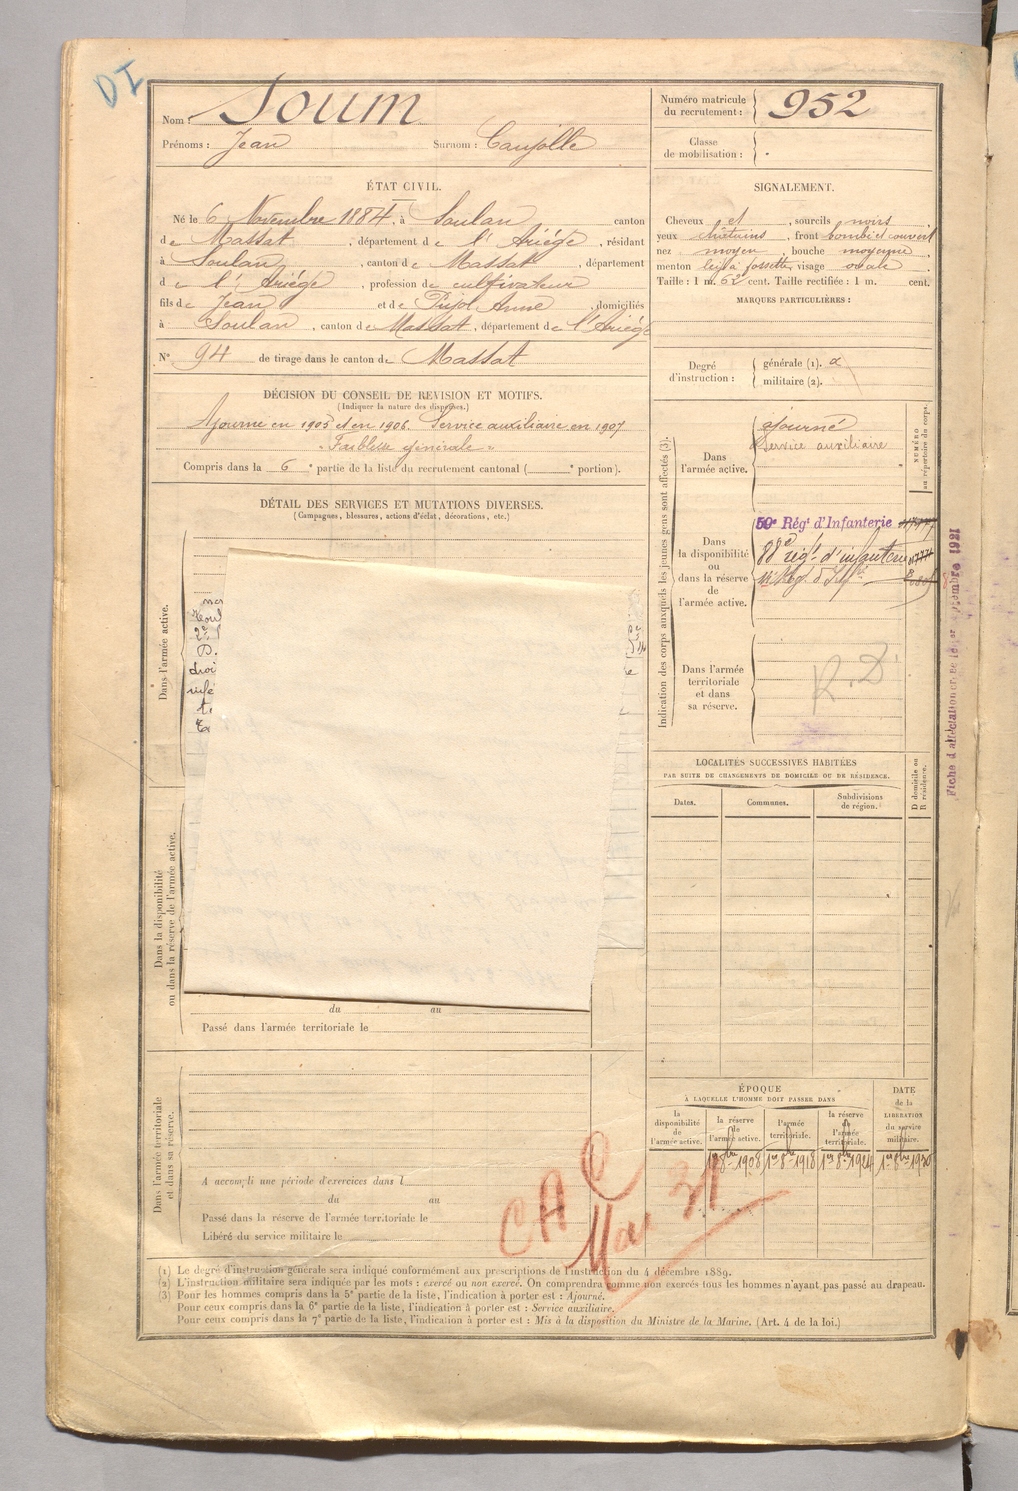 DI
Nom : Soum
Prénoms : Jean Surnom : Caujolle
Numéro matricule du recrutement : 952
Classe de mobilisation :
ÉTAT CIVIL.
Né le 6 Novembre 1884, à Soulan canton
de Massat, département de l'Ariége, résidant
à Soulan, canton de Massat, département
de l'Ariége, profession de cultivateur
fils de Jean et de Pujol Anne, domiciliés
à Soulan, canton de Massat, département de l'Ariége
N° 94 de tirage dans le canton de Massat
SIGNALEMENT.
Cheveux et, sourcils noirs
yeux châtains, front bombé et ouvert
nez moyen, bouche moyenne
menton à fossette, visage ovale
Taille : 1 m. 62 cent. Taille rectifiée : 1 m. cent.
MARQUES PARTICULIÈRES :
Degré d'instruction : générale (1). militaire (2).
DÉCISION DU CONSEIL DE REVISION ET MOTIFS.
(Indiquer la nature des dispenses.)
Ajourné en 1905 et en 1906. Service auxiliaire en 1907
"Faiblesse générale"
Compris dans la 6e partie de la liste du recrutement cantonal ( e portion).
DÉTAIL DES SERVICES ET MUTATIONS DIVERSES.
(Campagnes, blessures, actions d'éclat, décorations, etc.)
Dans l'armée active.
Dans la disponibilité ou dans la réserve de l'armée active.
du au
Passé dans l'armée territoriale le
Dans l'armée territoriale et dans sa réserve.
A accompli une période d'exercices dans l
du au
Passé dans la réserve de l'armée territoriale le
Libéré du service militaire le
Indication des corps auxquels les jeunes gens sont affectés (3).
NUMÉRO au répertoire du corps.
Dans l'armée active.
ajourné
Service auxiliaire
Dans la disponibilité ou dans la réserve de l'armée active.
59e Régt d'Infanterie
88e régt d'infanterie
Dans l'armée territoriale et dans sa réserve.
R.D
LOCALITÉS SUCCESSIVES HABITÉES
PAR SUITE DE CHANGEMENTS DE DOMICILE OU DE RÉSIDENCE.
Dates. Communes. Subdivisions de région. D domicile ou R résidence.
ÉPOQUE
À LAQUELLE L'HOMME DOIT PASSER DANS
la disponibilité de l'armée active.
la réserve de l'armée active.
l'armée territoriale.
la réserve de l'armée territoriale.
DATE de la LIBÉRATION du service militaire.
1er 8bre 1908 1er 8bre 1918 1er 8bre 1924
CAO
Mai 31
(1) Le degré d'instruction générale sera indiqué conformément aux prescriptions de l'instruction du 4 décembre 1889.
(2) L'instruction militaire sera indiquée par les mots : exercé ou non exercé. On comprendra comme non exercés tous les hommes n'ayant pas passé au drapeau.
(3) Pour les hommes compris dans la 5e partie de la liste, l'indication à porter est : Ajourné.
Pour ceux compris dans la 6e partie de la liste, l'indication à porter est : Service auxiliaire.
Pour ceux compris dans la 7e partie de la liste, l'indication à porter est : Mis à la disposition du Ministre de la Marine. (Art. 4 de la loi.)